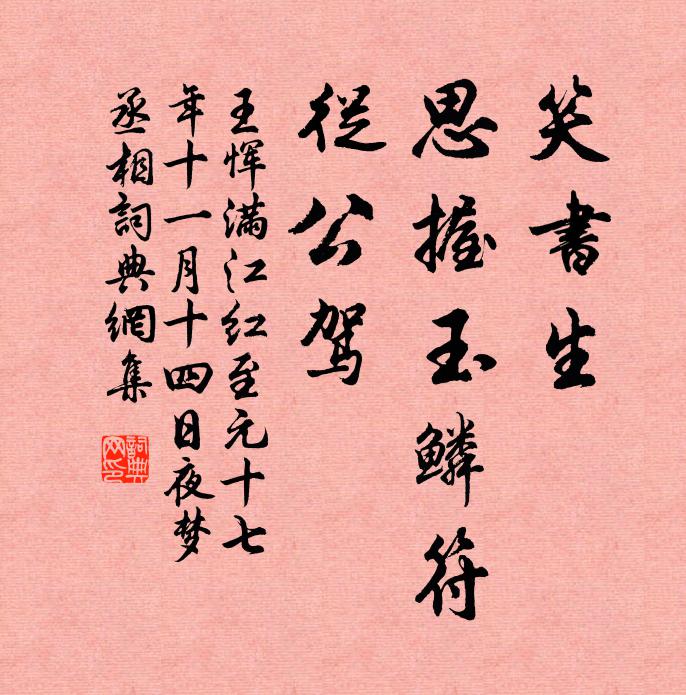 笑書生
思握玉鱗符
從公駕
王惲滿江红至元十七
年十一月十四日夜梦
丞相詞典網集
詞典
网印